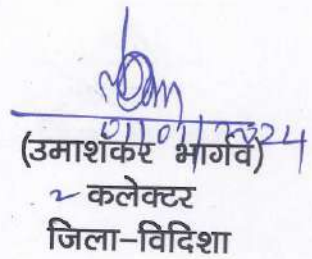 01/01/2024
(उमाशंकर भार्गव)
कलेक्टर
जिला-विदिशा